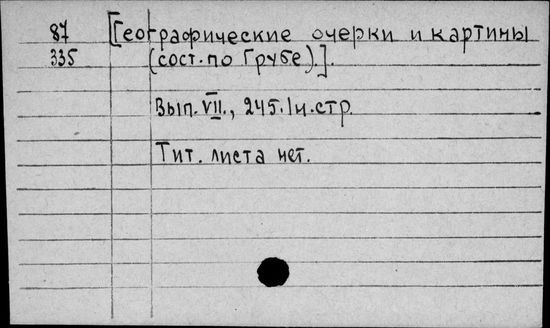 87 [Географические очерки и картины
335 (сост. по Грубе).].
Вып. VII., 245. 1 н. стр.
Тит. листа нет.